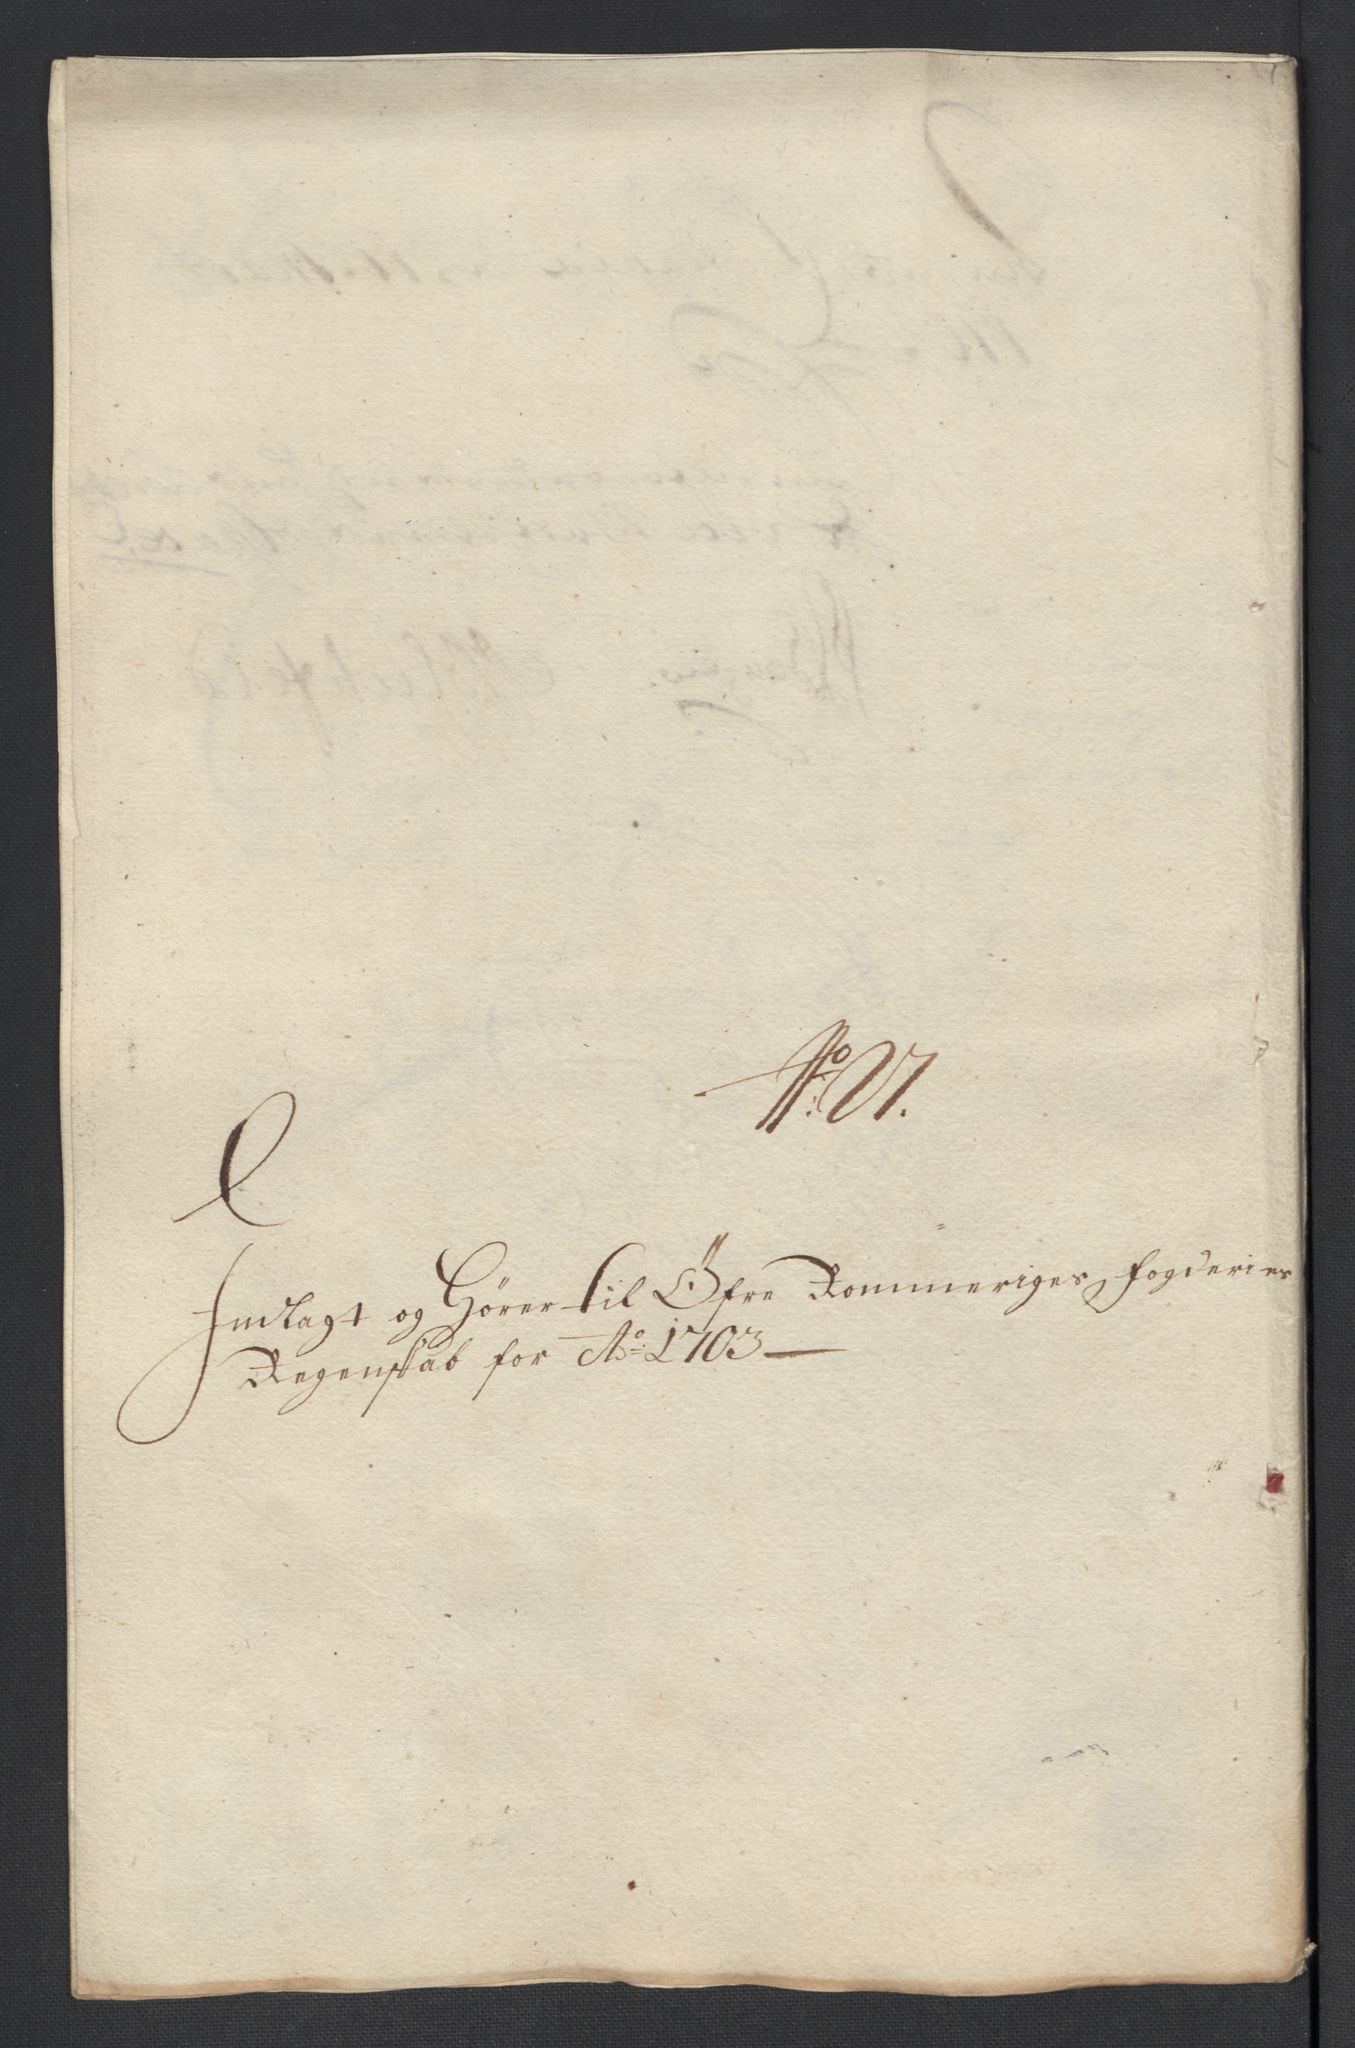 No: VI.
Indlagt og Hörer til Öfre Rommeriges fogderies
Regenskab for Ao: 1703